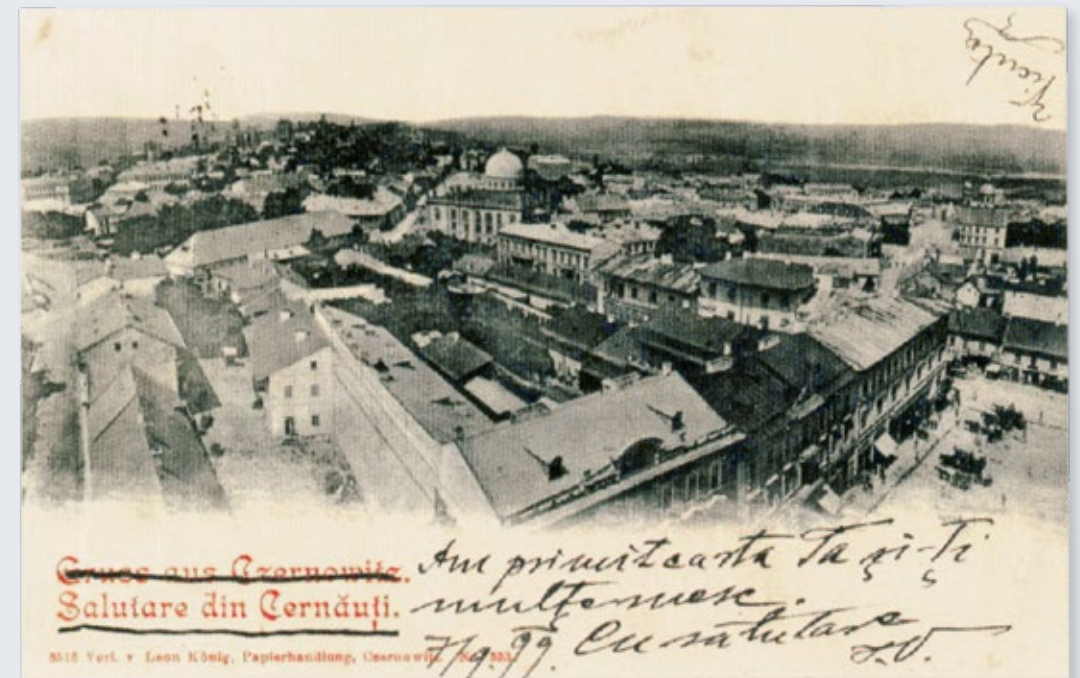 Gruss aus Czernowitz.
Salutare din Cernăuți.
Am primit carta Ta și-Ți
mulțemesc.
7/9.99. Cu salutare
J.V.
Verl. v Leon König, Papierhandlung, Czernowitz.